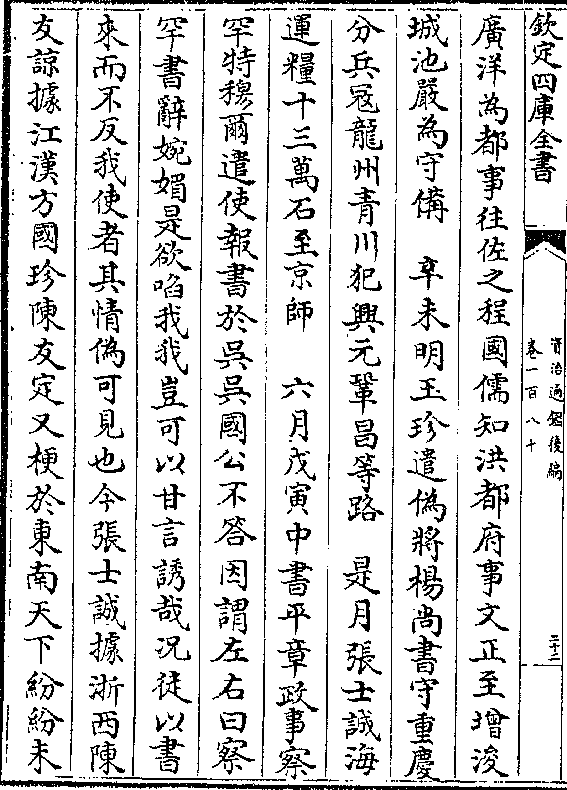 欽定四庫全書
資治通鑑後編
卷一百八十
二十二
廣洋為都事往佐之程國儒知洪都府事文正至增浚
城池嚴為守備　辛未明玉珍遣偽將楊尚書守重慶
分兵冦龍州青川犯興元鞏昌等路　是月張士誠海
運糧十三萬石至京師　六月戊寅中書平章政事察
罕特穆爾遣使報書於吳吳國公不答因謂左右曰察
罕書辭婉媚是欲啗我我豈可以甘言誘哉况徒以書
來而不反我使者其情偽可見也今張士誠據浙西陳
友諒據江漢方國珍陳友定又梗於東南天下紛紛未